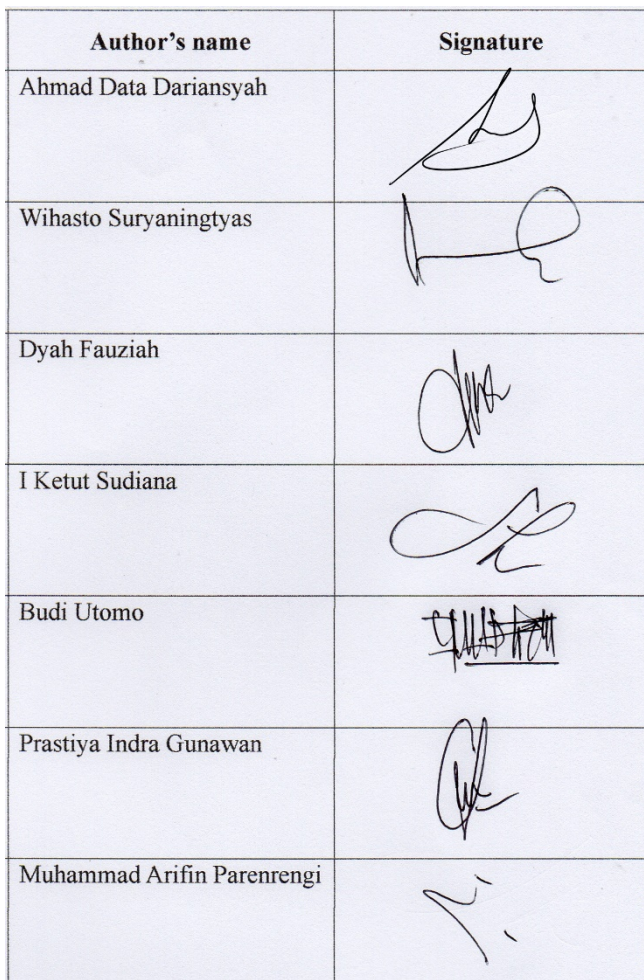 Author's name Signature
Ahmad Data Dariansyah
Wihasto Suryaningtyas
Dyah Fauziah
I Ketut Sudiana
Budi Utomo
Prastiya Indra Gunawan
Muhammad Arifin Parenrengi